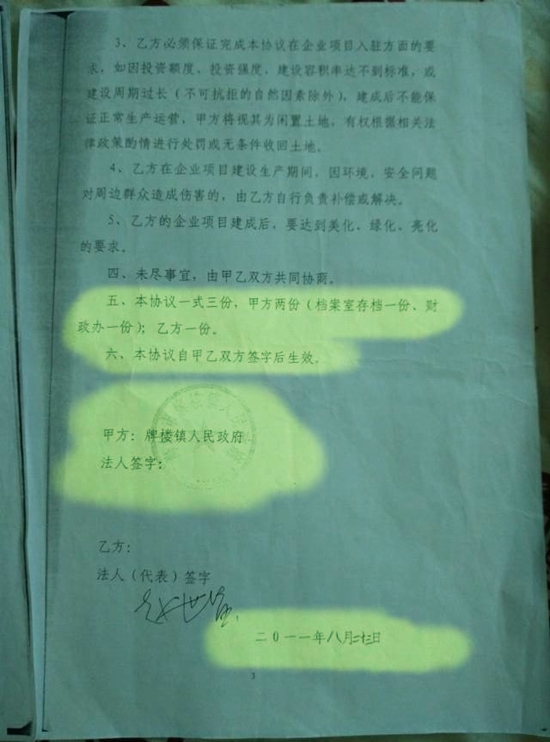 3、乙方必须保证完成本协议在企业项目入驻方面的要
求，如因投资额度、投资强度，建设容积率达不到标准，或
建设周期过长（不可抗拒的自然因素除外），建成后不能保
证正常生产运营，甲方将视其为闲置土地，有权根据相关法
律政策酌情进行处罚或无条件收回土地。
4、乙方在企业项目建设生产期间，因环境，安全问题
对周边群众造成伤害的，由乙方自行负责补偿或解决。
5、乙方的企业项目建成后，要达到美化、绿化、亮化
的要求。
四、未尽事宜，由甲乙双方共同协商。
五、本协议一式三份，甲方两份（档案室存档一份、财
政办一份）；乙方一份。
六、本协议自甲乙双方签字后生效。
甲方：牌楼镇人民政府
法人签字：
乙方：
法人（代表）签字
二0一一年八月二十三日
3